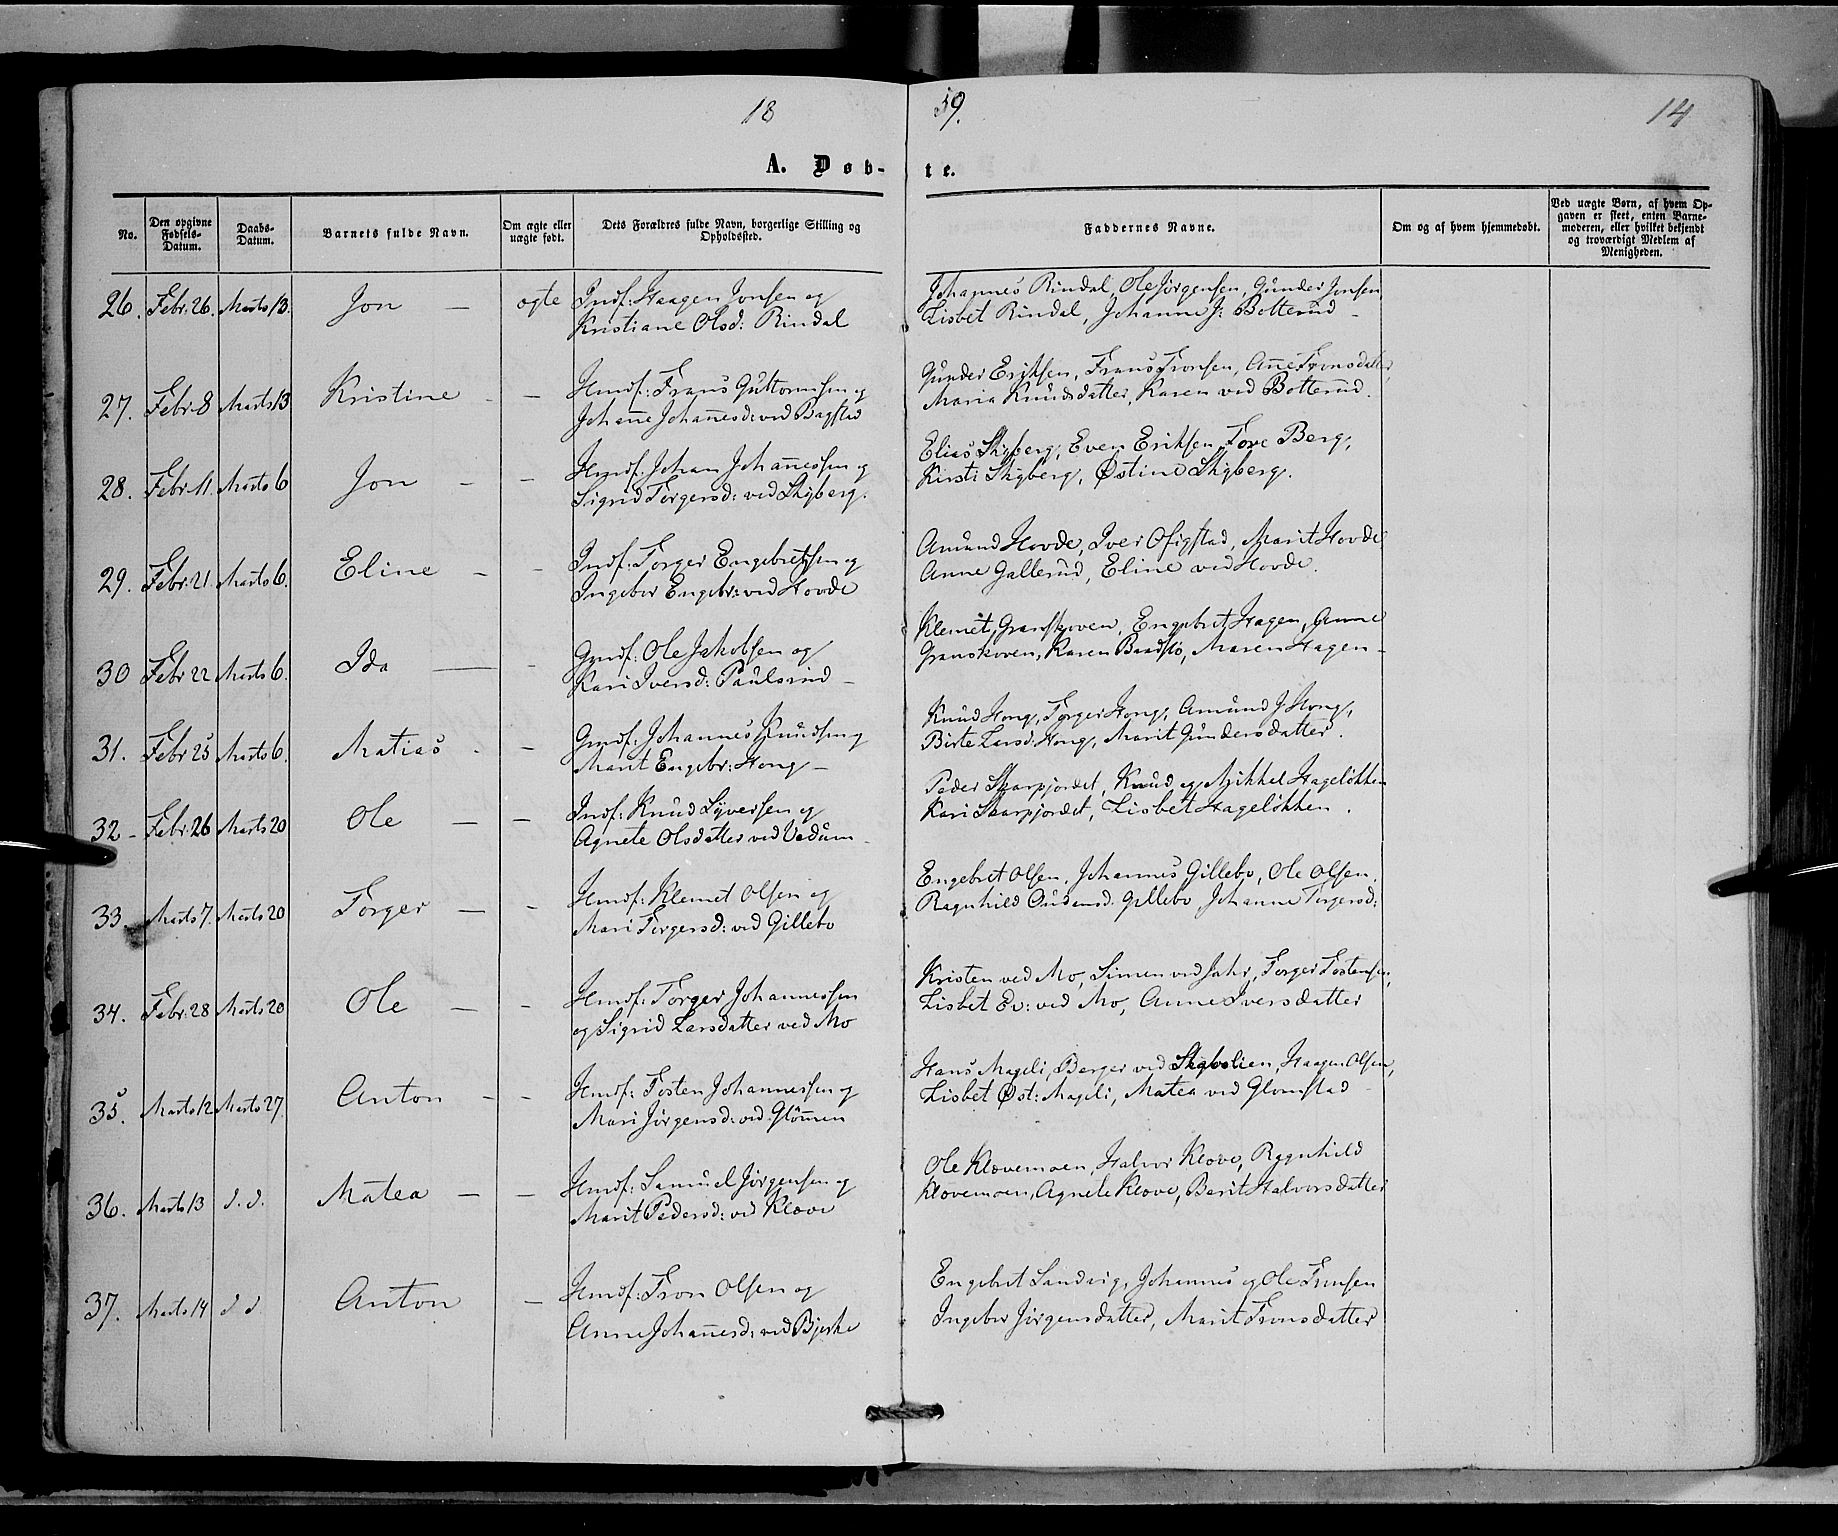 18 59. 14
A. Døb- te.
No. Den opgivne Fødsels-Datum. Daabs-Datum. Barnets fulde Navn. Om ægte eller uægte født. Dets Forældres fulde Navn, borgerlige Stilling og Opholdssted. Faddernes Navne. Om og af hvem hjemmedøbt. Ved uægte Børn, af hvem Opgaven er skeet, enten Barnemoderen, eller hvilket bekjendt og troværdigt Medlem af Menigheden.
26. Febr: 26. Marts 13. Jon — ægte Indf: Haagen Jonsen og
Kristiane Olsd: Rindal
Johannes Rindal, Ole Jørgensen, Gunder Jonsen,
Lisbet Rindal, Johanne J: Botterud —
27. Febr. 8 Marts 13 Kristine - — Hmdf: Frans Guttormsen og
Johanne Johannesd: ved Bagstad
Gunder Eriksen, Frans Fronsen, Anne Fronsdatter,
Maria Knudsdatter, Karen ved Botterud.
28. Febr. 11. Marts 6 Jon - — Hmdf: Johan Johannessen og
Sigrid Torgersd: ved Skyberg.
Elias Skyberg, Even Eriksen, Tore Berg,
Kirsti Skyberg, Østine Skyberg.
29. Febr: 21. Marts 6. Eline - - Indf: Torger Engebretsen og
Ingebor Engebr: ved Hovde
Amund Hovde, Iver Ofigstad, Marit Hovde
Anne Gallerud, Eline ved Hovde.
30 Febr 22 Marts 6. Ida — - Gmdf: Ole Jakobsen og
Kari Iversd: Paulsrud —
Klemet Granskoven, Engebret Hagen, Anne
Granskoven, Karen Baadstø, Maren Hagen -
31. Febr 25 Marts 6. Matias - — Gmdf: Johannes Knudsen og
Marit Engebr: Hong —
Knud Hong, Torger Hong, Amund J. Hong,
Birte Larsd: Hong, Marit Gundersdatter.
32 - Febr: 26 Marts 20 Ole — — Indf: Knud Syversen og
Agnete Olsdatter ved Vedum
Peder Skarpjordet, Knud og Mikkel Hageløkken
Kari Skarpjordet, Lisbet Hageløkken.
33. Marts 7. Marts 20 Torger — - Hmdf: Klemet Olsen og
Mari Torgersd: ved Gillebo
Engebret Olsen, Johannes Gillebo, Ole Olsen,
Ragnhild Audensd: Gillebo Johanne Torgersd:
34. Febr: 28 Marts 20 Ole — - Hmdf: Torger Johannessen
og Sigrid Larsdatter ved Mo
Kristen ved Mo, Simen ved Jahr, Torger Tostensen,
Lisbet Ev: ved Mo, Anne Iversdatter
35. Marts 12 Marts 27. Anton - - Hmdf: Tosten Johannessen og
Mari Jørgensd: ved Glømmen
Hans Mageli, Berger ved Skabelien, Haagen Olsen,
Lisbet Øst: Mageli, Matea ved Glomstad
36. Marts 13 d. d. Matea — — Hmdf: Samuel Jørgensen og
Marit Pedersd: ved Klove
Ole Klovemoen, Halvor Klove, Ragnhild
Klovemoen, Agnete Klove, Berit Halvorsdatter
37. Marts 14 d d Anton — Hmdf: Tron Olsen og
Anne Johannesd: ved Bjerke
Engebret Sandvig, Johannes og Ole Tronsen
Ingebor Jørgensdatter, Marit Tronsdatter